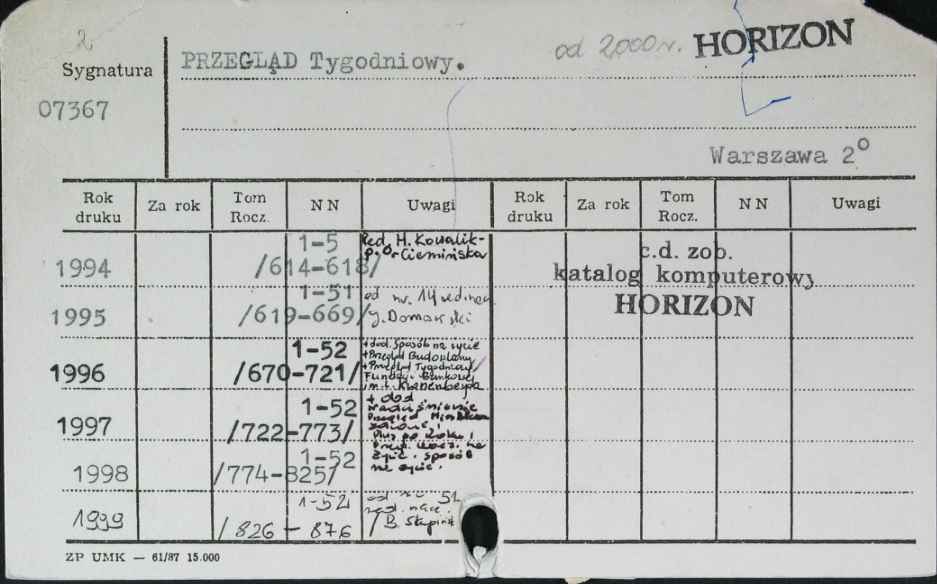 2
od 2000 r. HORIZON
Sygnatura
PRZEGLĄD Tygodniowy.
07367
Warszawa 2°
Rok druku Za rok Tom Rocz. NN Uwagi Rok druku Za rok Tom Rocz. NN Uwagi
1994 1-5 /614-618/ Red. H. Kowalik-
P. Ciemińska
1995 1-51 /619-669/ od nr. 14
J. Domański
1996 1-52 /670-721/ + dod. Sposób na życie
+ Przegląd Budowlany
+ Przegląd Tygodniowy
im. L. Kronenberga
1997 1-52 /722-773/ + dod
Przegląd
życie. sposób
na życie.
1998 1-52 /774-825/
1999 1-52 /826-876 51
red. nacz.
c.d. zob.
katalog komputerowy
HORIZON
ZP UMK — 61/87 15.000